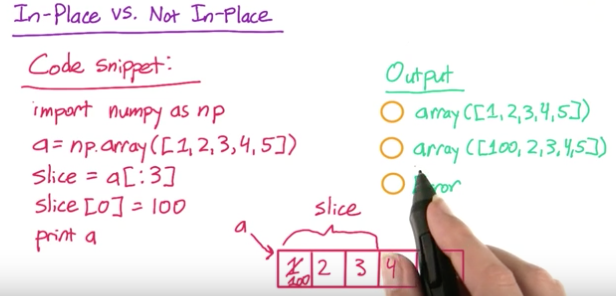 In-Place vs. Not In-Place
Code snippet:
import numpy as np
a = np.array([1,2,3,4,5])
slice = a[:3]
slice [0] = 100
print a
Output
array([1,2,3,4,5])
array([100,2,3,4,5])
slice
a
1 2 3 4
100